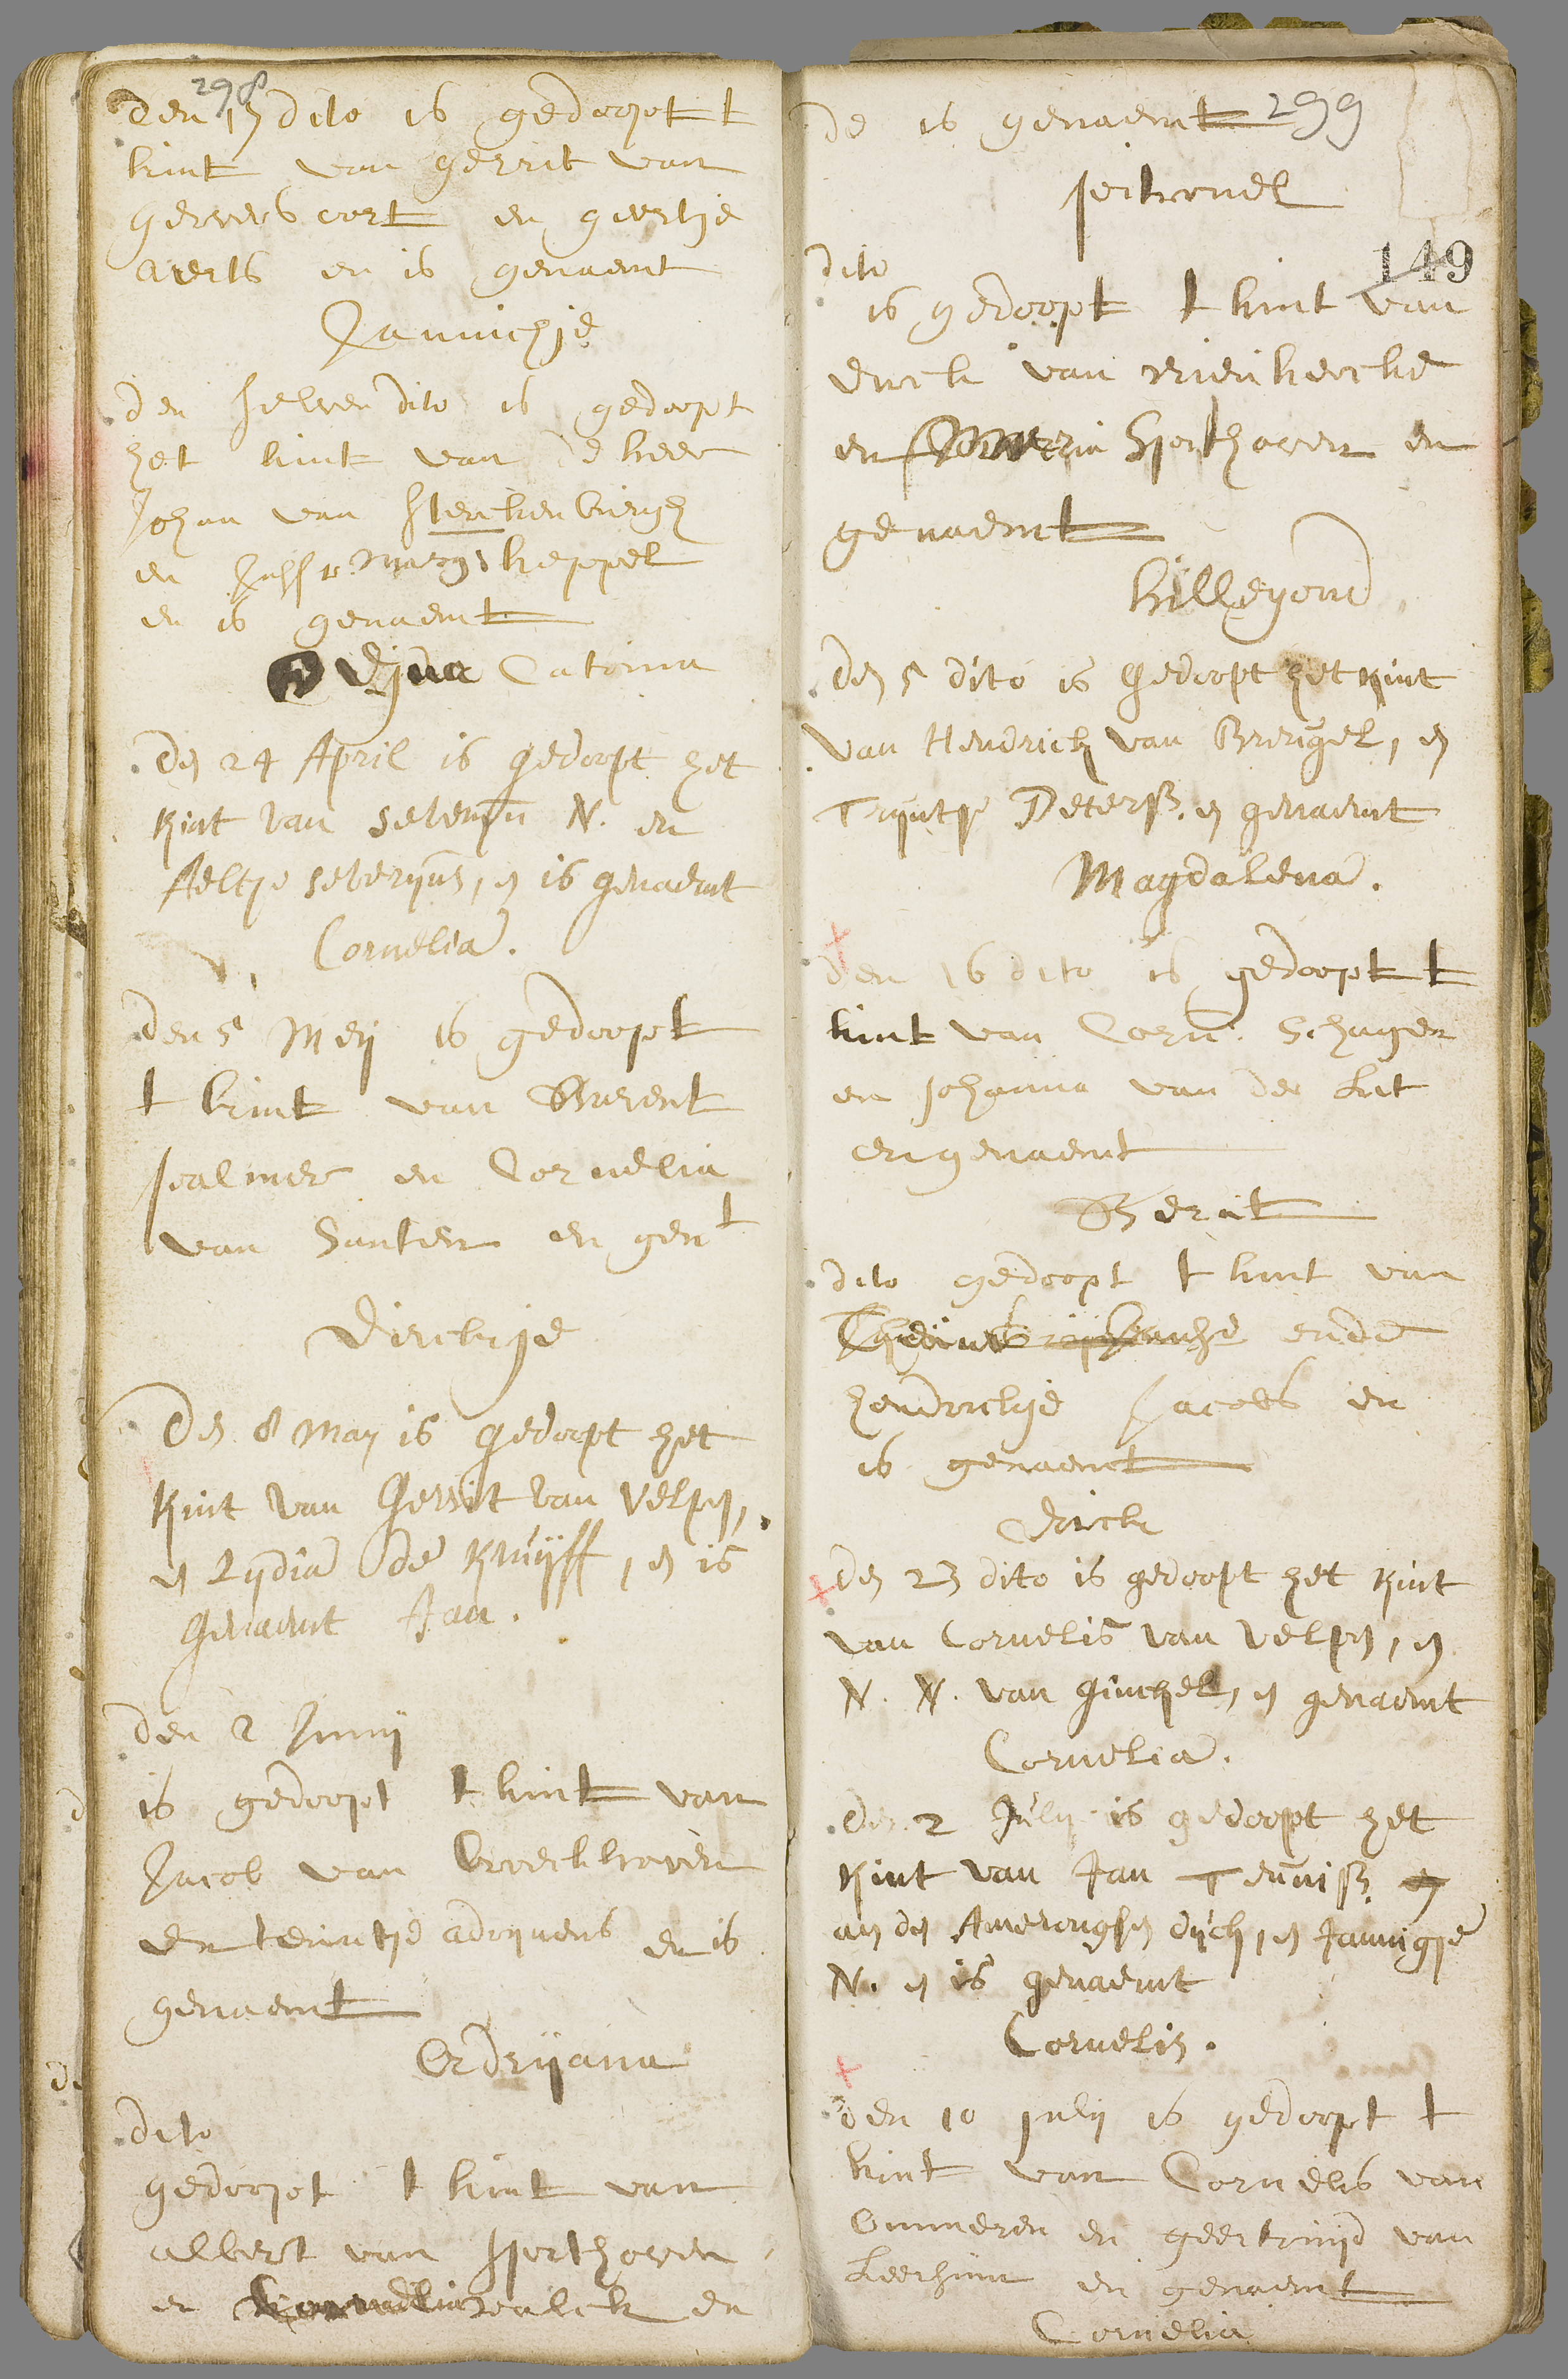 298
den 17 dito is gedoopt t
kint van gerrit van
gerverscort en geertje
aerts en is genaemt
Jannichje
den selven dito is gedoopt
het kint van de heer
Johan van sterckenburgh
en Juffr. Marg. keppel
en is genaemt
Catrina
Den 24 April is gedoopt het
Kint van severyn N. en
Aeltje severyns, en is genaemt
Cornelia.
den 5 Meij is gedoopt
t kint van Barent
palmer en Cornelia
van Santen en gent
Dirckje
Den 8 May is gedoopt het
Kint van Gerrit van Velpen,
en Lydia de Kruijff, en is
Genaemt Jan.
den 2 Junij
is gedoopt t kint van
Jacob van Broeckhoven
en teuntje adryaens en is
genaemt
Adrijana
dito
gedoopt t kint van
albert van sporthoven
en valck en
de is genaemt 299
petronel
149
dito
is gedoopt t kint van
Dirck van nieukercke
en Sporthoven en
genaemt
hillegond
Den 5 dito is Gedoopt het kint
van Hendrick van Brengel, en
Tryntje Peterss. en genaemt
Magdalena.
den 16 dito is gedoopt t
kint van Corn. Schagen
en Johanna van der Lit
en genaemt
Berent
dito gedoopt t kint van
ende
hendrickje Jacobs en
is genaemt
Dirck
Den 23 dito is gedoopt het Kint
van Cornelis van Velpen, en
N. N. van Ginckel, en genaemt
Cornelia.
Den 2 July is gedoopt het
Kint van Jan Teuniss.
an den Amerongsen dyck, en Jannigje
N. en is genaemt
Cornelis.
den 10 julij is gedoopt t
kint van Cornelis van
Ommeren en geertruijd van
Leersum en genaemt
Cornelia